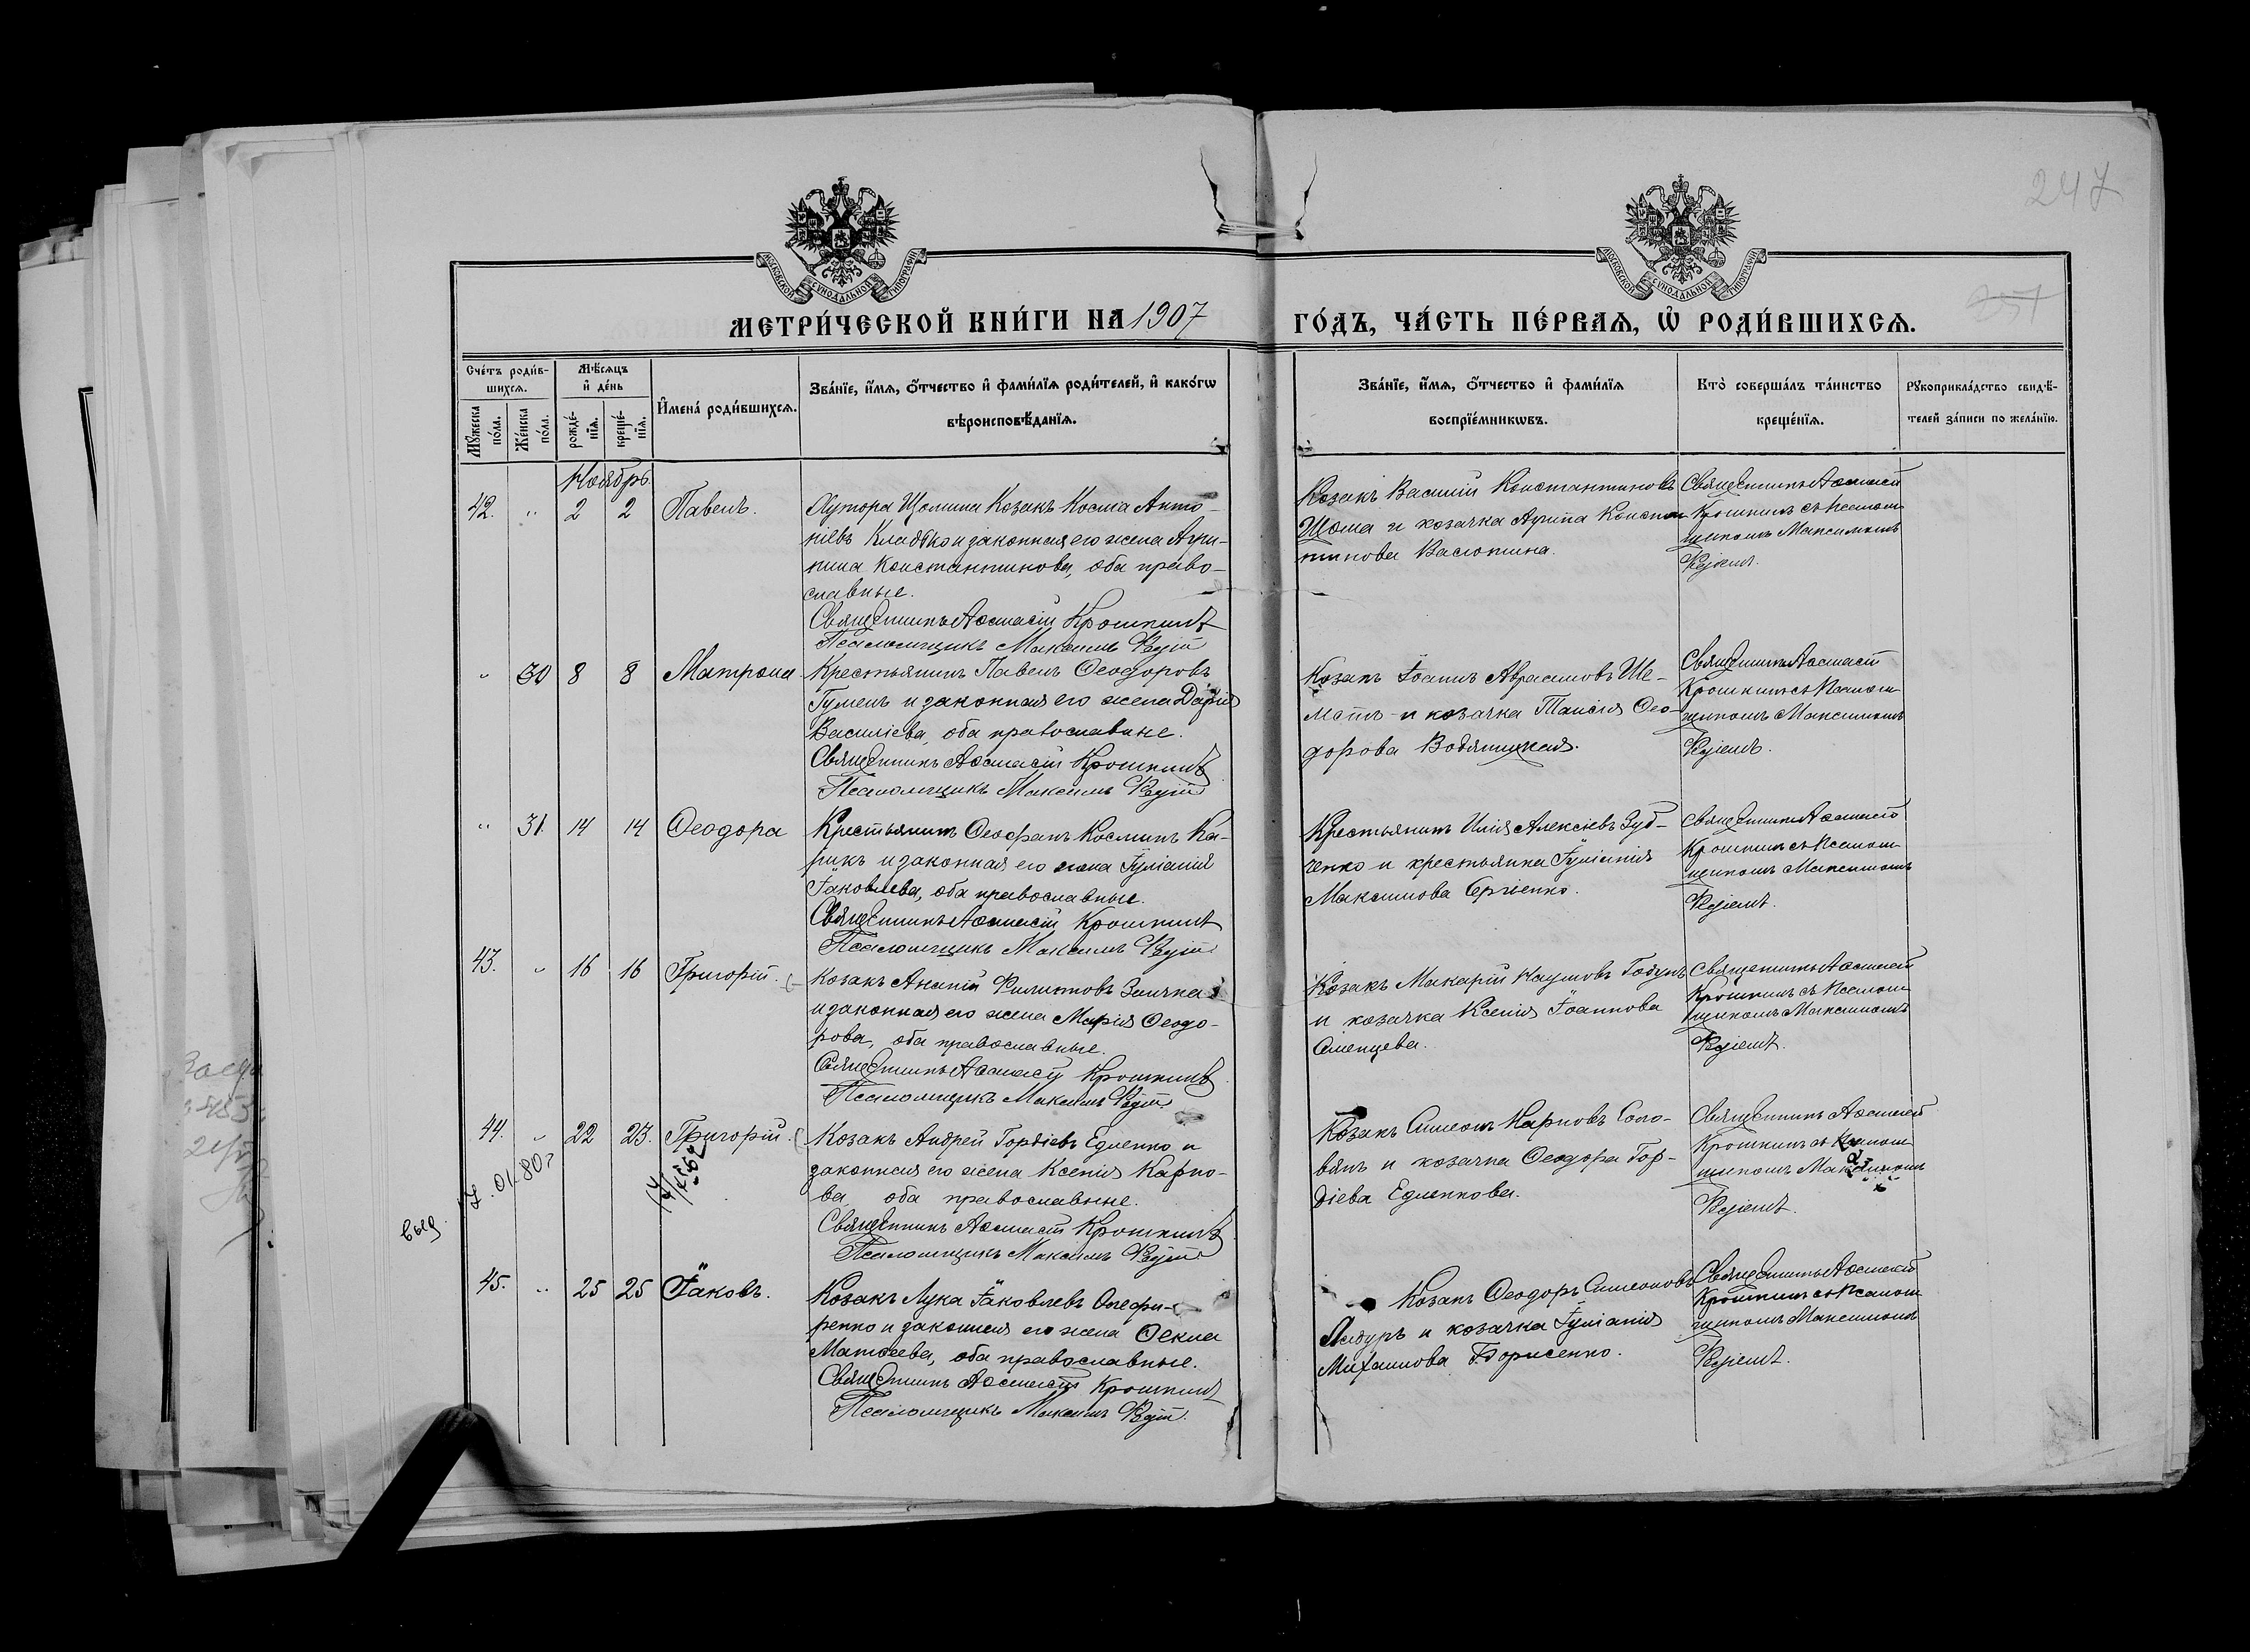 247
МОСКОВСКОЙ СѴНОДАЛЬНОЙ ТИПОГРАФІИ
МОСКОВСКОЙ СѴНОДАЛЬНОЙ ТИПОГРАФІИ
МЕТРИ́ЧЕСКОЙ КНИ́ГИ НА 1907 ГО́ДЪ, ЧА́СТЬ ПЕ́РВАѦ, Ѽ РОДИ́ВШИХСѦ.
Сче́тъ роди́в-
шихсѧ.
Мꙋ́жеска по́ла.
Же́нска по́ла.
Мѣ́сѧцъ
и҆ де́нь
рожде́-
нїѧ.
креще́-
нїѧ.
И҆мена̀ роди́вшихсѧ.
Зва́нїе, и҆́мѧ, ѻ҆́тчество и҆ фами́лїѧ роди́телей, и҆ како́гѡ
вѣроисповѣ́данїѧ.
Зва́нїе, и҆́мѧ, ѻ҆́тчество и҆ фами́лїѧ
воспрїе́мникѡвъ.
Кто̀ соверша́лъ та́инство
креще́нїѧ.
Рꙋкоприкла́дство свидѣ́-
телей за́писи по жела́нїю.
Ноябрь
42. " 2 2 Павелъ.
Хутора Щомина Козакъ Косма Анто-
ніевъ Кладько и законная его жена Агри-
пина Константинова, оба право-
славные.
Священникъ Аѳанасій Крошкинъ
Псаломщикъ Максимъ
Козакъ Василій Константиновъ
Щома и козачка Агрипа Констан-
тинова Васютина.
Священникъ Аѳанасій
Крошкинъ съ псалом-
щикомъ Максимомъ
" 30 8 8 Матрона
Крестьянинъ Павелъ Ѳеодоровъ
Гуменъ и законная его жена Дарія
Василіева, оба православные.
Священникъ Аѳанасій Крошкинъ
Псаломщикъ Максимъ
Козакъ Іоаннъ Аврамовъ Ше-
метъ и козачка Таисія Ѳео-
дорова Водяницкая.
Священникъ Аѳанасій
Крошкинъ съ Псалом-
щикомъ Максимомъ
" 31. 14 14 Ѳеодора
Крестьянинъ Ѳеофанъ Косминъ Ка-
рикъ и законная его жена Іуліанія
Іаковлева, оба православные.
Священникъ Аѳанасій Крошкинъ
Псаломщикъ Максимъ
Крестьянинъ Илія Алексіевъ Зуб-
ченко и крестьянка Іуліанія
Максимова Сергіенко.
Священникъ Аѳанасій
Крошкинъ съ Псалом-
щикомъ Максимомъ
43. " 16 16 Григорій.
Козакъ Ананій Филиповъ Заичка
и законная его жена Марія Ѳеодо-
рова, оба православные.
Священникъ Аѳанасій Крошкинъ
Псаломщикъ Максимъ
Козакъ Макарій Наумовъ
и козачка Ксенія Іоаннова
Семенцева.
Священникъ Аѳанасій
Крошкинъ съ Псалом-
щикомъ Максимомъ
44. " 22 23. Григорій.
Козакъ Андрей Гордіевъ Едченко и
законная его жена Ксенія Карпо-
ва, оба православные.
Священникъ Аѳанасій Крошкинъ
Псаломщикъ Максимъ
Козакъ Симеонъ Карповъ Соло-
вянъ и козачка Ѳеодора Гор-
діева Едченкова.
Священникъ Аѳанасій
Крошкинъ съ Псалом-
щикомъ Максимомъ
выд.
45. " 25 25 Іаковъ.
Козакъ Лука Іаковлевъ Онефи-
ренко и законная его жена Ѳекла
Матѳеева, оба православные.
Священникъ Аѳанасій Крошкинъ
Псаломщикъ Максимъ
Козакъ Ѳеодоръ Симеоновъ
и козачка Іуліанія
Михаилова Борисенко.
Священникъ Аѳанасій
Крошкинъ съ Псалом-
щикомъ Максимомъ